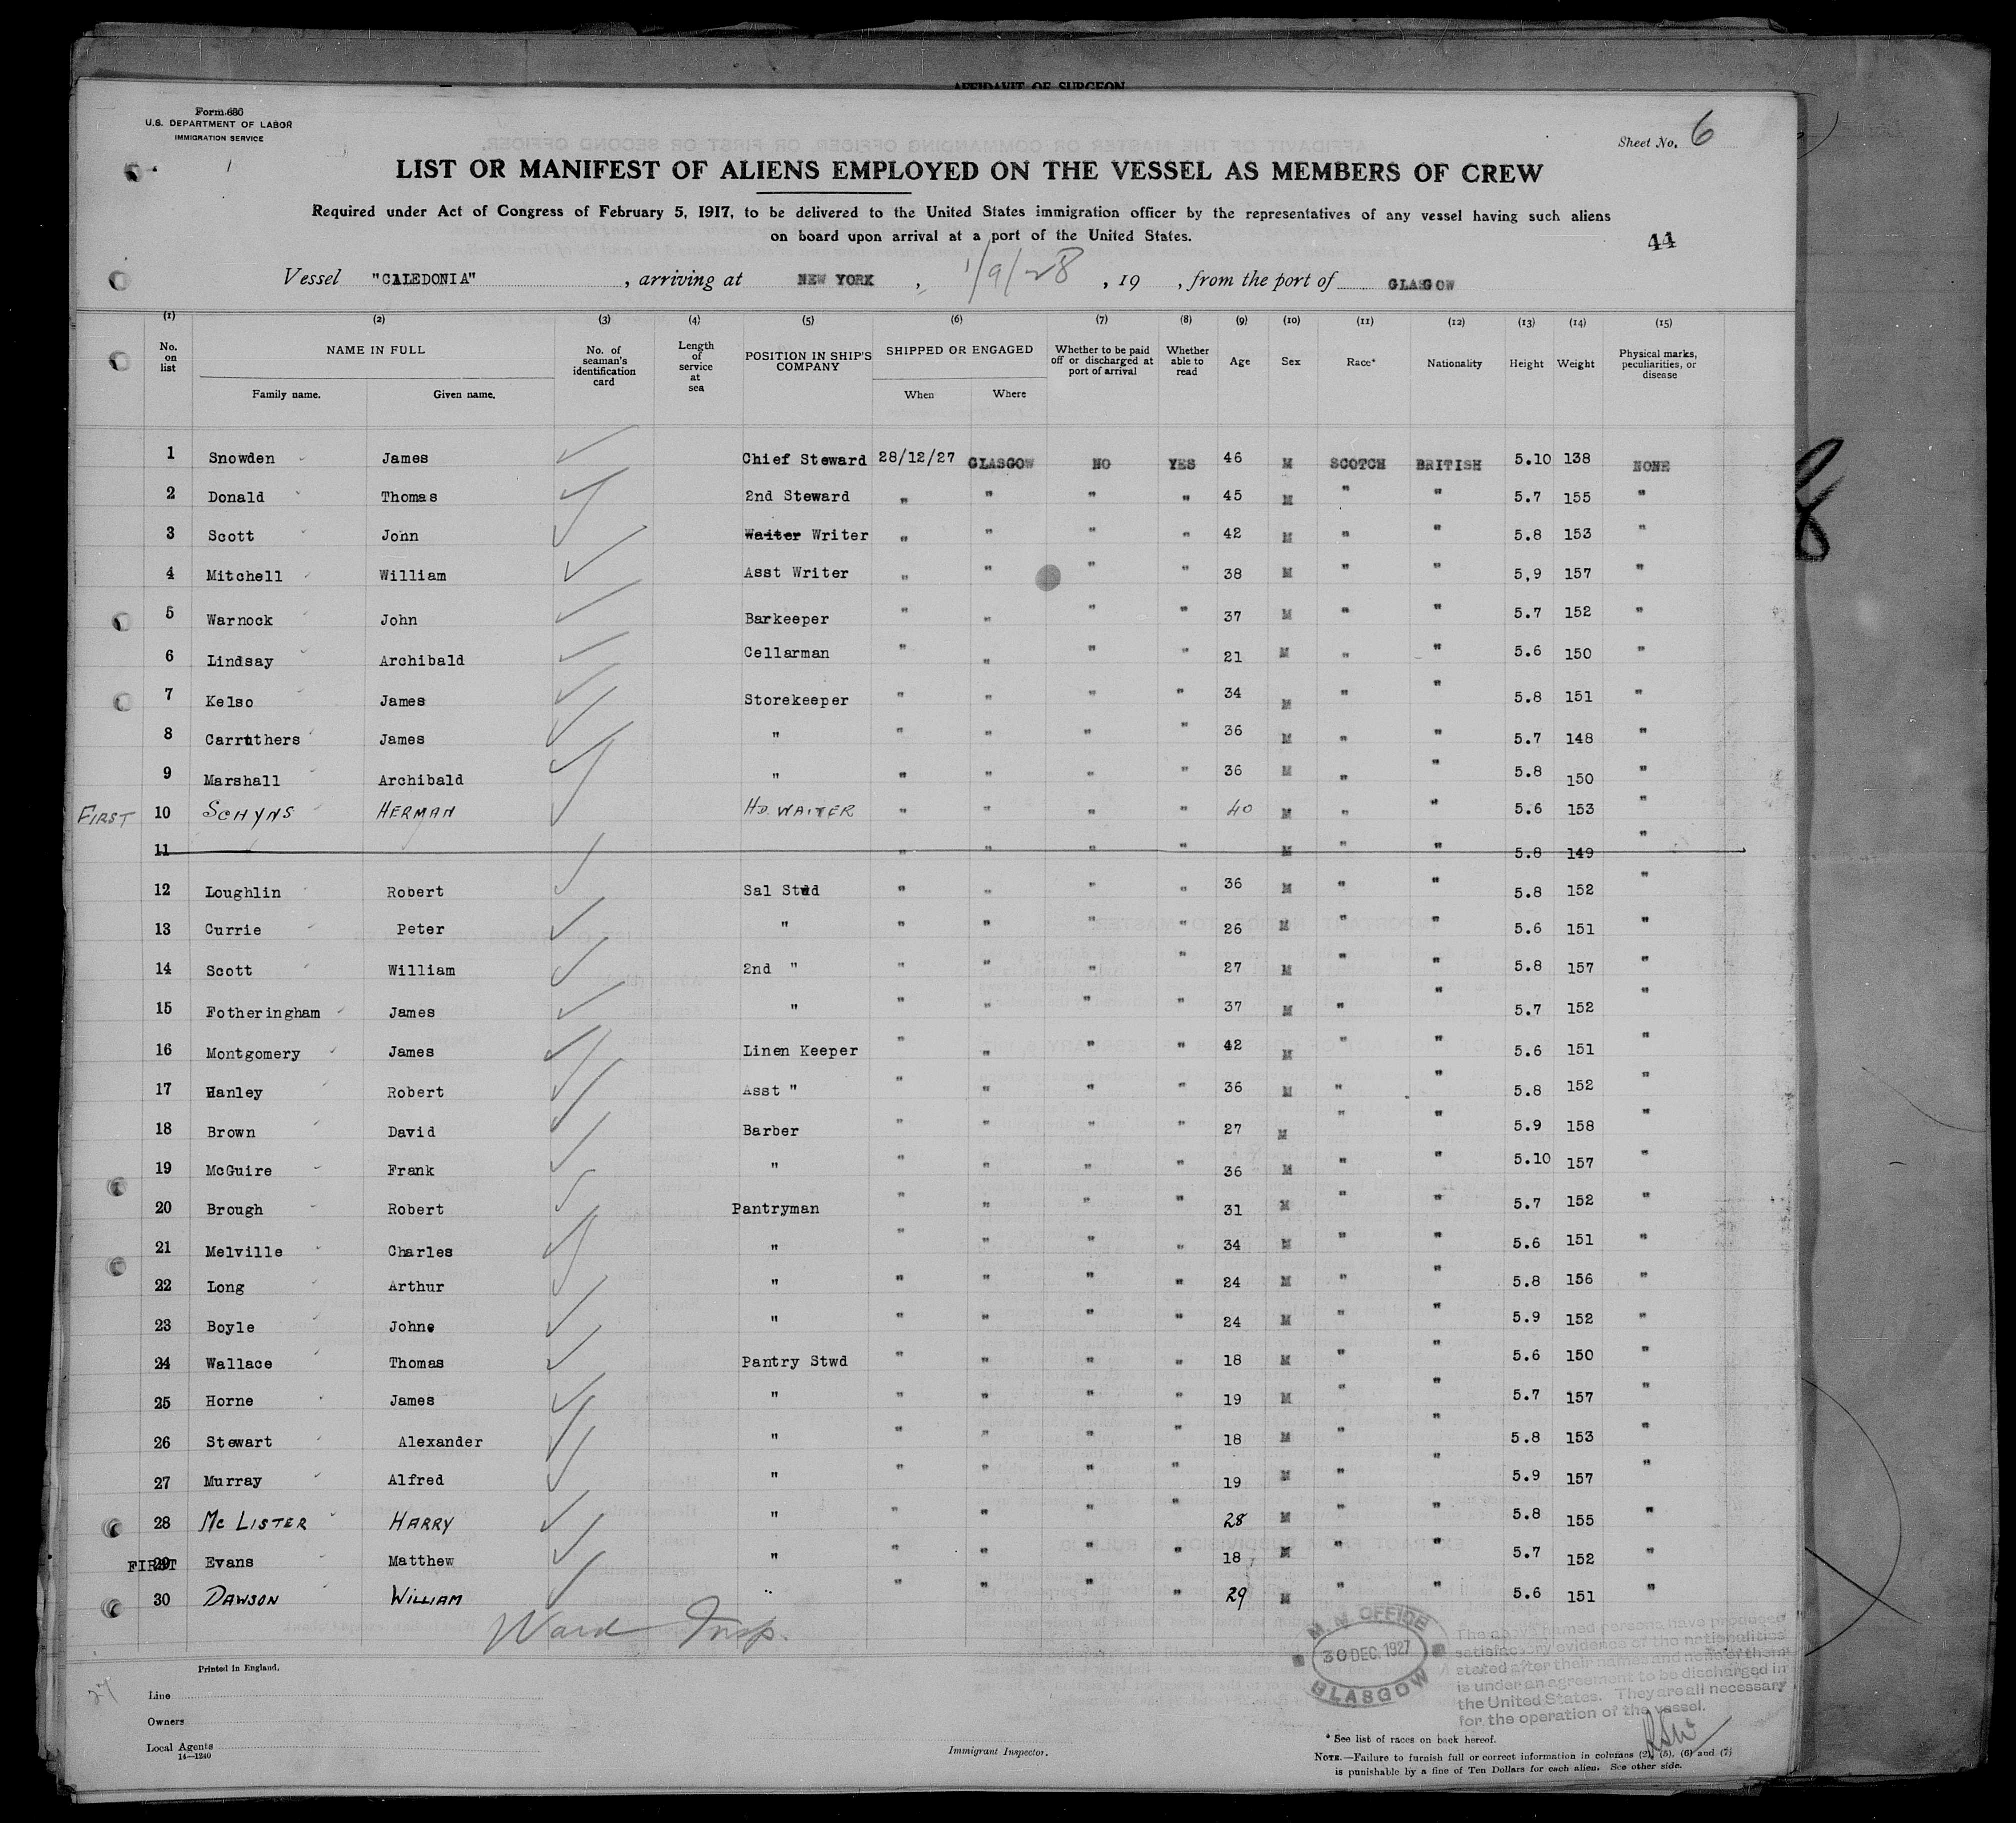 AFFIDAVIT OF SURGEON
Form 680
U.S. DEPARTMENT OF LABOR
IMMIGRATION SERVICE
Sheet No. 6
LIST OR MANIFEST OF ALIENS EMPLOYED ON THE VESSEL AS MEMBERS OF CREW
Required under Act of Congress of February 5, 1917, to be delivered to the United States immigration officer by the representatives of any vessel having such aliens
on board upon arrival at a port of the United States.
44
Vessel "CALEDONIA" , arriving at NEW YORK , 1/9/28 , 19 , from the port of GLASGOW
(1) (2) (3) (4) (5) (6) (7) (8) (9) (10) (11) (12) (13) (14) (15)
No. on list NAME IN FULL Family name. Given name. No. of seaman's identification card Length of service at sea POSITION IN SHIP'S COMPANY SHIPPED OR ENGAGED When Where Whether to be paid off or discharged at port of arrival Whether able to read Age Sex Race* Nationality Height Weight Physical marks, peculiarities, or disease
1 Snowden James Chief Steward 28/12/27 GLASGOW NO YES 46 M SCOTCH BRITISH 5.10 138 NONE
2 Donald Thomas 2nd Steward " " " " 45 M " " 5.7 155 "
3 Scott John Waiter Writer " " " " 42 M " " 5.8 153 "
4 Mitchell William Asst Writer " " " " 38 M " " 5,9 157 "
5 Warnock John Barkeeper " " " " 37 M " " 5.7 152 "
6 Lindsay Archibald Cellarman " " " " 21 M " " 5.6 150 "
7 Kelso James Storekeeper " " " " 34 M " " 5.8 151 "
8 Carruthers James " " " " " 36 M " " 5.7 148 "
9 Marshall Archibald " " " " " 36 M " " 5.8 150 "
FIRST 10 SCHYNS HERMAN HD. WAITER " " " " 40 M " " 5.6 153 "
11 " " " " M " " 5.8 149 "
12 Loughlin Robert Sal Stwd " " " " 36 M " " 5.8 152 "
13 Currie Peter " " " " " 26 M " " 5.6 151 "
14 Scott William 2nd " " " " " 27 M " " 5.8 157 "
15 Fotheringham James " " " " " 37 M " " 5.7 152 "
16 Montgomery James Linen Keeper " " " " 42 M " " 5.6 151 "
17 Hanley Robert Asst " " " " " 36 M " " 5.8 152 "
18 Brown David Barber " " " " 27 M " " 5.9 158 "
19 McGuire Frank " " " " " 36 M " " 5.10 157 "
20 Brough Robert Pantryman " " " " 31 M " " 5.7 152 "
21 Melville Charles " " " " " 34 M " " 5.6 151 "
22 Long Arthur " " " " " 24 M " " 5.8 156 "
23 Boyle Johne " " " " " 24 M " " 5.9 152 "
24 Wallace Thomas Pantry Stwd " " " " 18 M " " 5.6 150 "
25 Horne James " " " " " 19 M " " 5.7 157 "
26 Stewart Alexander " " " " " 18 M " " 5.8 153 "
27 Murray Alfred " " " " " 19 M " " 5.9 157 "
28 Mc LISTER HARRY " " " " " 28 M " " 5.8 155 "
FIRST 29 Evans Matthew " " " " " 18 M " " 5.7 152 "
30 DAWSON WILLIAM " " " " " 29 M " " 5.6 151 "
Ward Insp.
M. M. OFFICE
30 DEC. 1927
GLASGOW
The above named persons have produced
satisfactory evidence of the nationalities
stated after their names and none of them
is under an agreement to be discharged in
the United States. They are all necessary
for the operation of the vessel.
Printed in England.
27
Line
Owners
Local Agents
14—1240
Immigrant Inspector.
* See list of races on back hereof.
NOTE.—Failure to furnish full or correct information in columns (2), (5), (6) and (7)
is punishable by a fine of Ten Dollars for each alien. See other side.